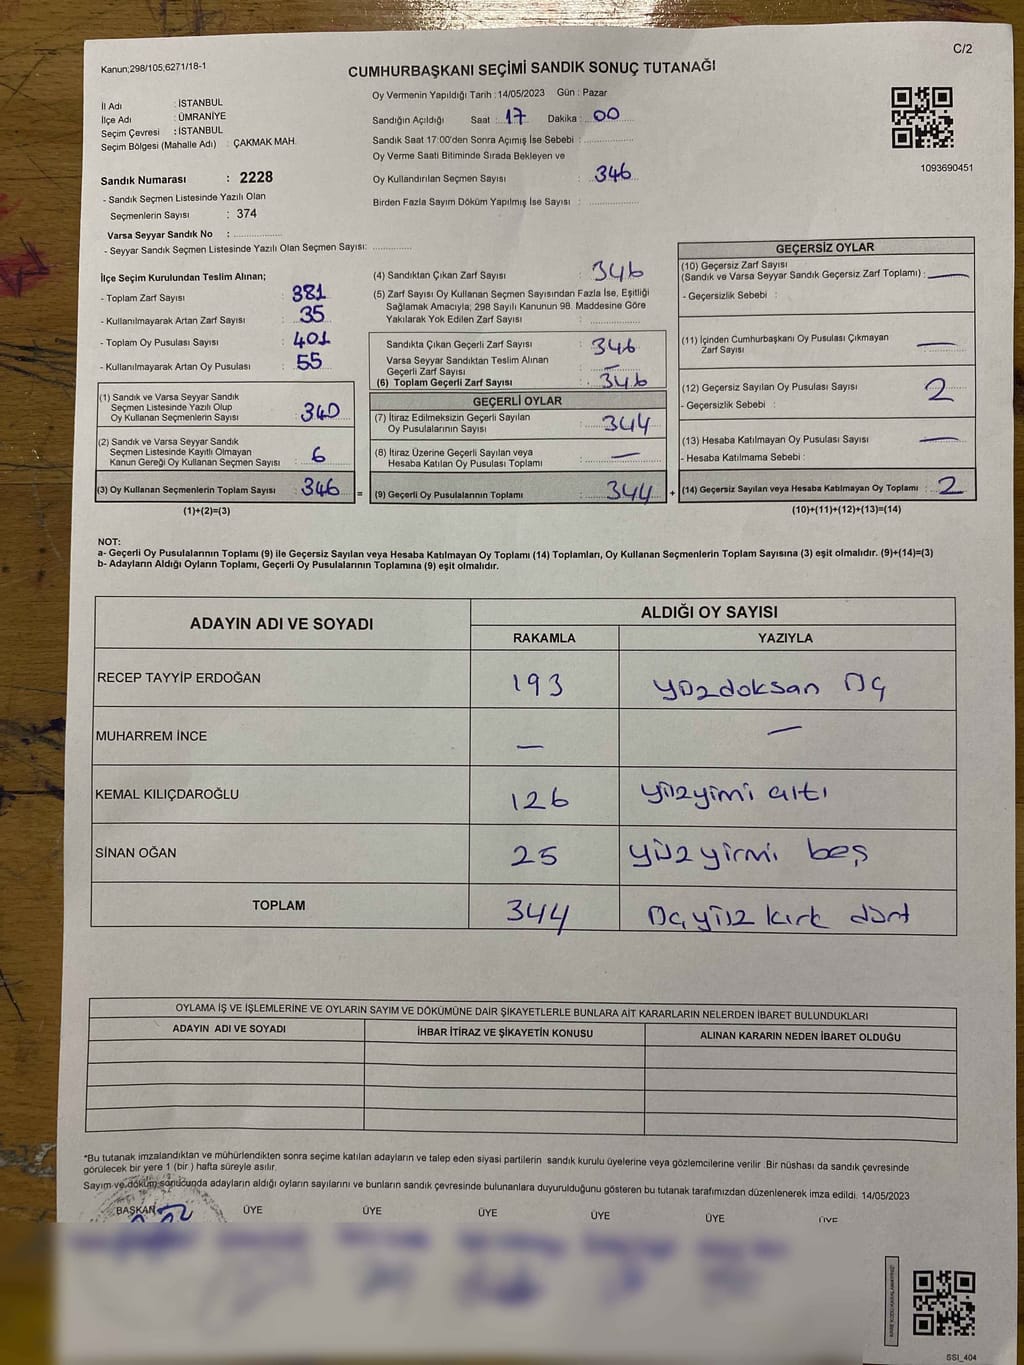 C/2
Kanun;298/105,6271/18-1
CUMHURBAŞKANI SEÇİMİ SANDIK SONUÇ TUTANAĞI
İl Adı : İSTANBUL
İlçe Adı : ÜMRANİYE
Seçim Çevresi : İSTANBUL
Seçim Bölgesi (Mahalle Adı) : ÇAKMAK MAH.
Sandık Numarası : 2228
- Sandık Seçmen Listesinde Yazılı Olan
Seçmenlerin Sayısı : 374
Varsa Seyyar Sandık No :
- Seyyar Sandık Seçmen Listesinde Yazılı Olan Seçmen Sayısı:
Oy Vermenin Yapıldığı Tarih : 14/05/2023 Gün : Pazar
Sandığın Açıldığı Saat : 17 Dakika : 00
Sandık Saat 17:00'den Sonra Açımış İse Sebebi :
Oy Verme Saati Bitiminde Sırada Bekleyen ve
Oy Kullandırılan Seçmen Sayısı : 346
Birden Fazla Sayım Döküm Yapılmış İse Sayısı :
1093690451
İlçe Seçim Kurulundan Teslim Alınan;
- Toplam Zarf Sayısı : 381
- Kullanılmayarak Artan Zarf Sayısı : 35
- Toplam Oy Pusulası Sayısı : 401
- Kullanılmayarak Artan Oy Pusulası : 55
(1) Sandık ve Varsa Seyyar Sandık
Seçmen Listesinde Yazılı Olup
Oy Kullanan Seçmenlerin Sayısı : 340
(2) Sandık ve Varsa Seyyar Sandık
Seçmen Listesinde Kayıtlı Olmayan
Kanun Gereği Oy Kullanan Seçmen Sayısı : 6
(3) Oy Kullanan Seçmenlerin Toplam Sayısı : 346
(1)+(2)=(3)
(4) Sandıktan Çıkan Zarf Sayısı : 346
(5) Zarf Sayısı Oy Kullanan Seçmen Sayısından Fazla İse, Eşitliği
Sağlamak Amacıyla; 298 Sayılı Kanunun 98. Maddesine Göre
Yakılarak Yok Edilen Zarf Sayısı :
Sandıkta Çıkan Geçerli Zarf Sayısı : 346
Varsa Seyyar Sandıktan Teslim Alınan
Geçerli Zarf Sayısı : —
(6) Toplam Geçerli Zarf Sayısı : 346
GEÇERLİ OYLAR
(7) İtiraz Edilmeksizin Geçerli Sayılan
Oy Pusulalarının Sayısı : 344
(8) İtiraz Üzerine Geçerli Sayılan veya
Hesaba Katılan Oy Pusulası Toplamı : —
= (9) Geçerli Oy Pusulalarının Toplamı : 344 +
GEÇERSİZ OYLAR
(10) Geçersiz Zarf Sayısı
(Sandık ve Varsa Seyyar Sandık Geçersiz Zarf Toplamı) : —
- Geçersizlik Sebebi :
(11) İçinden Cumhurbaşkanı Oy Pusulası Çıkmayan
Zarf Sayısı : —
(12) Geçersiz Sayılan Oy Pusulası Sayısı : 2
- Geçersizlik Sebebi :
(13) Hesaba Katılmayan Oy Pusulası Sayısı : —
- Hesaba Katılmama Sebebi :
(14) Geçersiz Sayılan veya Hesaba Katılmayan Oy Toplamı : 2
(10)+(11)+(12)+(13)=(14)
NOT:
a- Geçerli Oy Pusulalarının Toplamı (9) ile Geçersiz Sayılan veya Hesaba Katılmayan Oy Toplamı (14) Toplamları, Oy Kullanan Seçmenlerin Toplam Sayısına (3) eşit olmalıdır. (9)+(14)=(3)
b- Adayların Aldığı Oyların Toplamı, Geçerli Oy Pusulalarının Toplamına (9) eşit olmalıdır.
ADAYIN ADI VE SOYADI ALDIĞI OY SAYISI
RAKAMLA YAZIYLA
RECEP TAYYİP ERDOĞAN 193 yüzdoksan üç
MUHARREM İNCE — —
KEMAL KILIÇDAROĞLU 126 yüzyimi altı
SİNAN OĞAN 25 yüz yirmi beş
TOPLAM 344 üçyüz kırk dört
OYLAMA İŞ VE İŞLEMLERİNE VE OYLARIN SAYIM VE DÖKÜMÜNE DAİR ŞİKAYETLERLE BUNLARA AİT KARARLARIN NELERDEN İBARET BULUNDUKLARI
ADAYIN ADI VE SOYADI İHBAR İTİRAZ VE ŞİKAYETİN KONUSU ALINAN KARARIN NEDEN İBARET OLDUĞU
*Bu tutanak imzalandıktan ve mühürlendikten sonra seçime katılan adayların ve talep eden siyasi partilerin sandık kurulu üyelerine veya gözlemcilerine verilir .Bir nüshası da sandık çevresinde
görülecek bir yere 1 (bir ) hafta süreyle asılır.
Sayım ve döküm sonucunda adayların aldığı oyların sayılarını ve bunların sandık çevresinde bulunanlara duyurulduğunu gösteren bu tutanak tarafımızdan düzenlenerek imza edildi. 14/05/2023
BAŞKAN ÜYE ÜYE ÜYE ÜYE ÜYE ÜYE
SSI_404